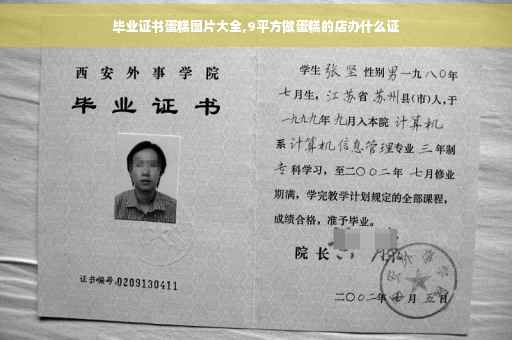 毕业证书蛋糕图片大全,9平方做蛋糕的店办什么证
西安外事学院
毕业证书
证书编号:0209130411
学生张坚性别男一九八〇年
七月生,江苏省苏州县(市)人,于
一九九九年九月入本院计算机
系计算机信息管理专业三年制
专科学习,至二〇〇二年七月修业
期满,学完教学计划规定的全部课程,
成绩合格,准予毕业。
院长
二〇〇二年 月五日